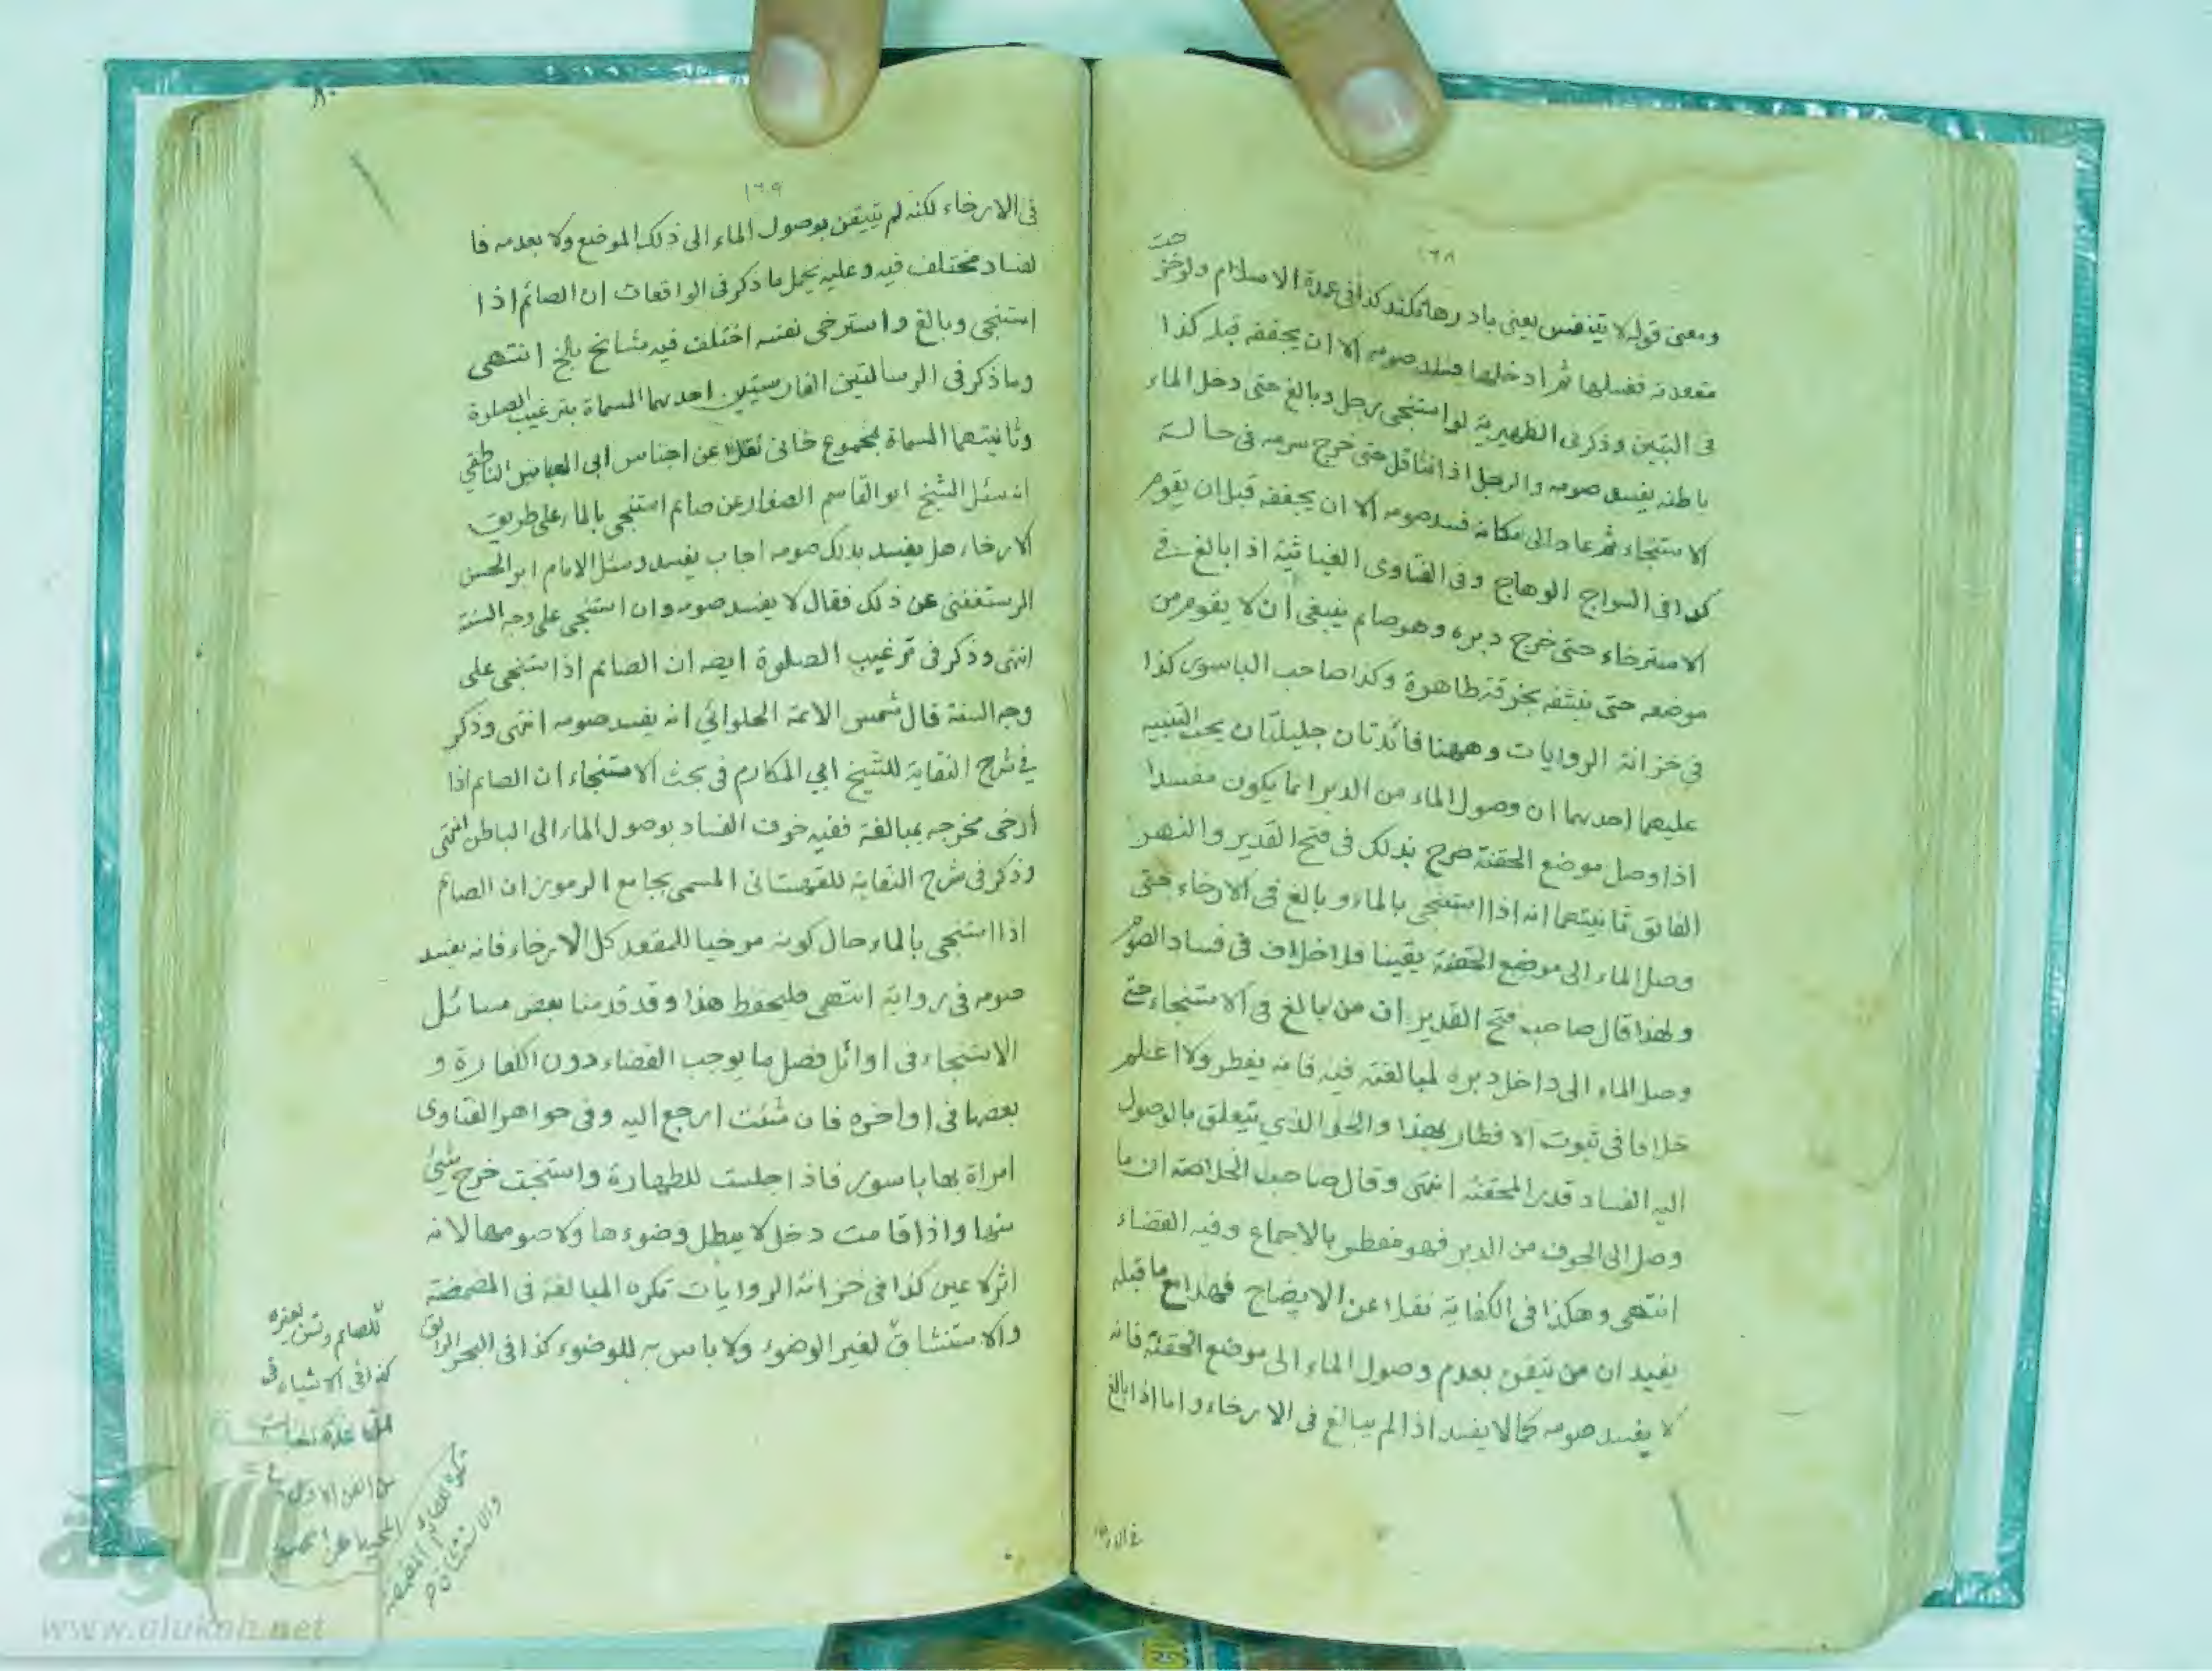 ١٦٨
ومعنى قوله لا يتنفس يعنى بادر رها مكند كذا فى عمدة الاسلام ولو خرج
مقعدته فغسلها ثم ادخلها فسد صومه الا ان يجففه قبله كذا
فى التبين وذكر فى الظهيرية لو استنجى رجل وبالغ حتى دخل الماء
باطنه يفسد صومه والرجل اذا تثاقل حتى خرج سرمه فى حالة
الاستنجاء ثم عاد الى مكانه فسد صومه الا ان يجففه قبل ان يقوم
كذا فى السراج الوهاج وفى الفتاوى الغياثية اذا بالغ فى
الاسترخاء حتى خرج دبره وهو صايم ينبغى ان لا يقوم من
موضعه حتى ينشفه بخرقة طاهرة وكذا صاحب الباسور كذا
فى خزانة الروايات وههنا فائدتان جليلتان يجب التنبيه
عليهما احدهما ان وصول الماء من الدبر انما يكون مفسدا
اذا وصل موضع الحقنة صرح بذلك فى فتح القدير والنهر
الفائق ثانيتهما انه اذا استنجى بالماء وبالغ فى الارخاء حتى
وصل الماء الى موضع الحقنة يقينا فلا خلاف فى فساد الصوم
ولهذا قال صاحب فتح القدير ان من بالغ فى الاستنجاء حتى
وصل الماء الى داخل دبره لمبالغته فيه فانه يفطر ولا اعلم
خلافا فى ثبوت الافطار بهذا والحد الذي يتعلق بالوصول
اليه الفساد قدر المحقنة انتهى وقال صاحب الخلاصة ان ما
وصل الى الجوف من الدبر فهو مفطر بالاجماع وفيه القضاء
انتهى وهكذا فى الكفاية نقلا عن الايضاح فهذا مع ما قبله
يفيد ان من تيقن بعدم وصول الماء الى موضع الحقنة فانه
لا يفسد صومه كما لا يفسد اذا لم يبالغ فى الارخاء واما اذا بالغ
فى الارخاء
١٦٩
فى الارخاء لكنه لم يتيقن بوصول الماء الى ذلك الموضع ولا بعدمه فا
لفساد مختلف فيه وعليه يحمل ما ذكر فى الواقعات ان الصائم اذا
استنجى وبالغ واسترخى نفسه اختلف فيه مشائخ بلخ انتهى
وما ذكر فى الرسالتين الفارسيتين احدهما المسماة بترغيب الصلوة
وثانيتهما المسماة بمجموع خانى نقلا عن اجناس ابى العباس الناطفي
انه سئل الشيخ ابو القاسم الصفار عن صايم استنجى بالماء على طريق
الارخاء هل يفسد بذلك صومه اجاب يفسد وسئل الامام ابو الحسن
الرستغفنى عن ذلك فقال لا يفسد صومه وان استنجى على وجه السنة
انتهى وذكر فى ترغيب الصلوة ايضه ان الصايم اذا ستنجى على
وجه السنة قال شمس الائمة الحلوائي انه يفسد صومه انتهى وذكر
في شرح النقاية للشيخ ابي المكارم فى بحث الاستنجاء ان الصايم اذا
أرخى مخرجه بمبالغة ففيه خوف الفساد بوصول الماء الى الباطن انتهى
وذكر فى شرح النقاية للقهستانى المسمى بجامع الرموز ان الصائم
اذا استنجى بالماء حال كونه مرخيا للمقعد كل الارخاء فانه يفسد
صومه فى رواية انتهى فليحفظ هذا وقد قدمنا بعض مسائل
الاستنجاء فى اوائل فصل ما يوجب القضاء دون الكفارة و
بعضها فى اواخره فان شئت ارجع اليه وفى جواهر الفتاوى
امراة بها باسور فاذا جلست للطهارة واستنجت خرج شئ
منها واذا قامت دخل لا يبطل وضوءها ولا صومها لانه
اثر لا عين كذا فى خزانة الروايات تكره المبالغة فى المضمضة
والاستنشاق لغير الوضوء ولا باس به للوضوء كذا فى البحر الرائق
للصائم وتسن لغيره
كذا فى الاشباه فى
من الفن الاول
تكره للصائم المضمضة
والاستنشاق
الألوكة
www.alukah.net